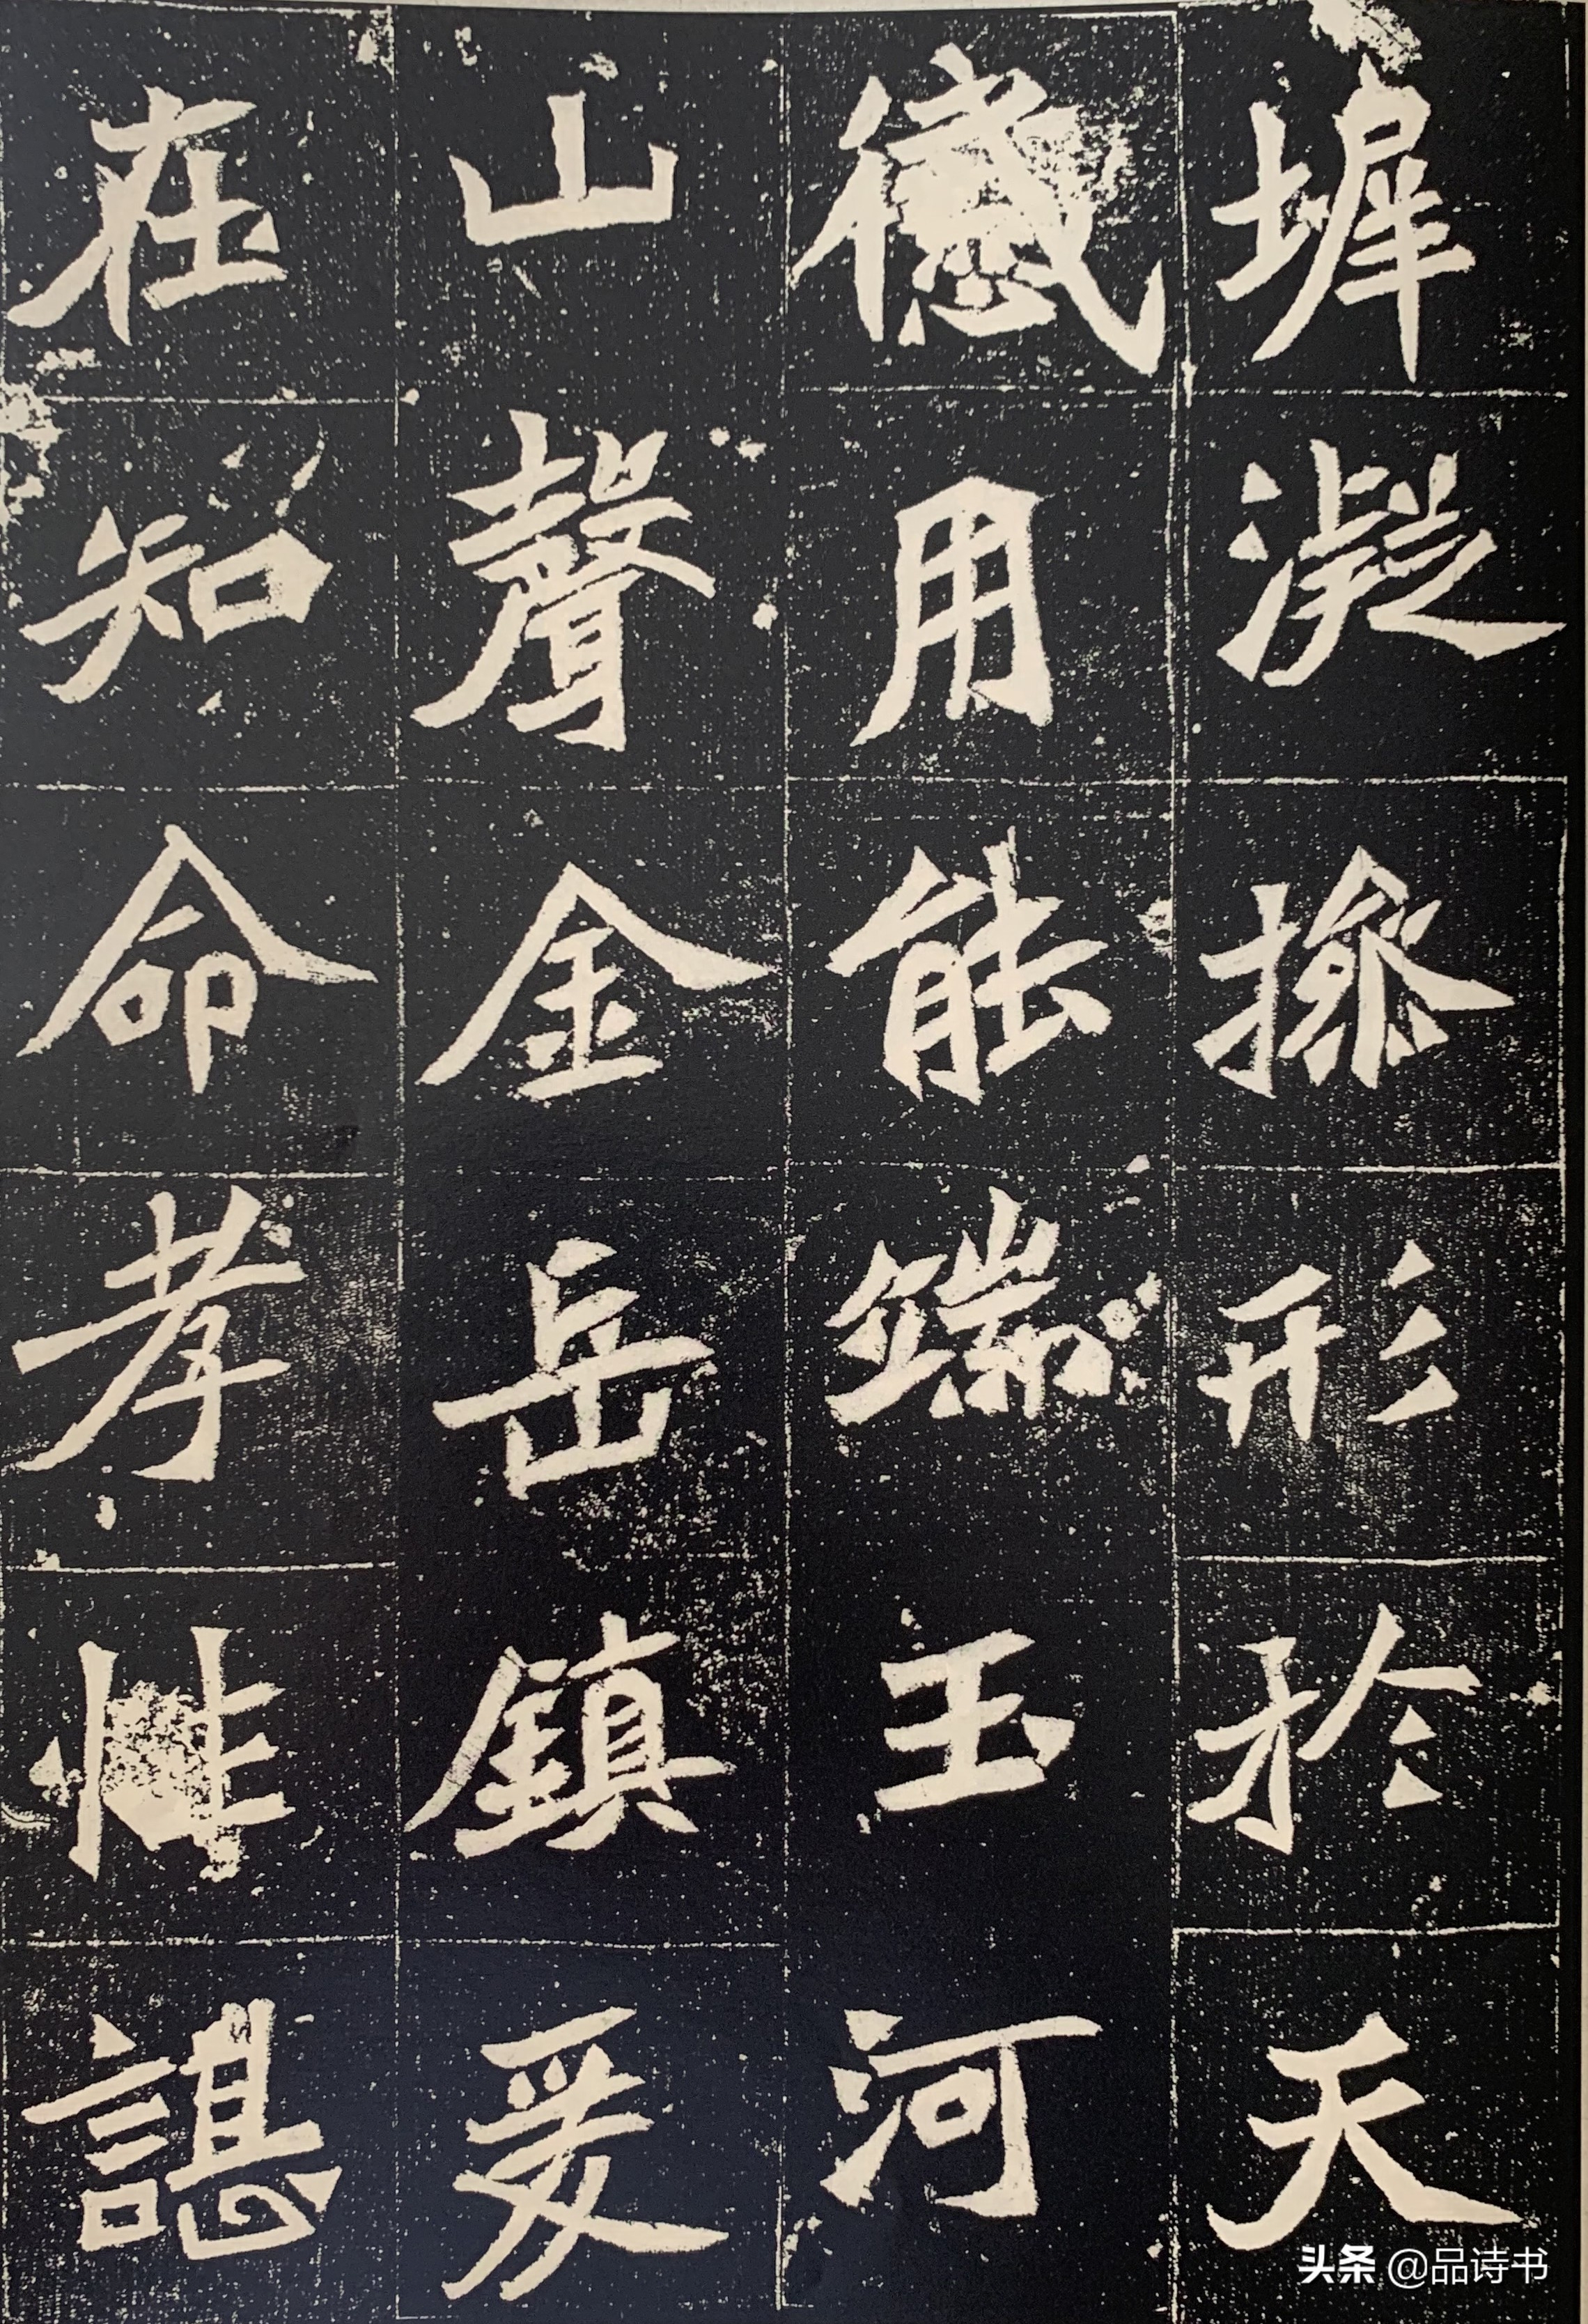 墀凝操形於天
感用能端玉河
山聲金岳鎮爰
在知命孝性諶
头条 @品诗书